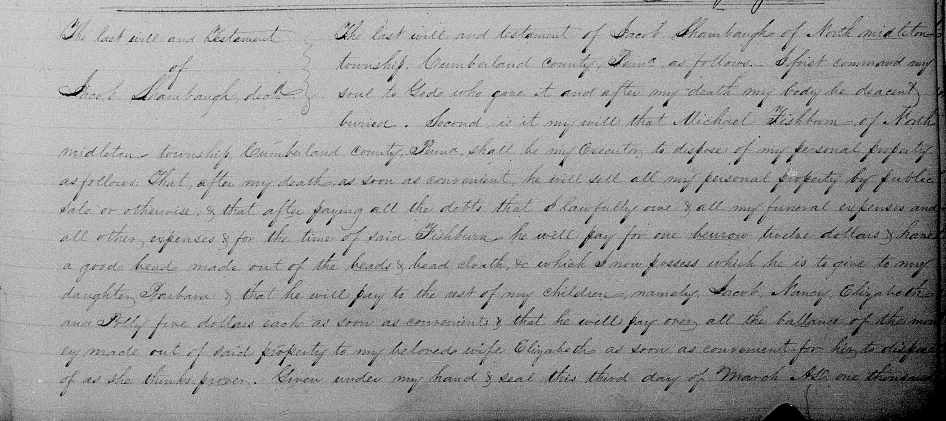 The last will and Testament
of
Jacob Shambaugh, decd
The last will and testament of Jacob Shambaugh of North midleton
township, Cumberland county, Penna as follows. I first command my
soul to God who gave it and after my death my body be deacent
buried. Second is it my will that Michael Fishburn of North
midleton township, Cumberland county, Penna shall be my Executor, to dispose of my personal property
as follows. That, after my death as soon as convenient, he will sell all my personal property by public
sale or otherwise, & that after paying all the detts that I lawfully owe & all my funeral expenses and
all other expenses & for the time of said Fishburn he will pay for one burow twelve dollars & have
a good bead made out of the beads & bead cloath, &c which I now possess which he is to give to my
daughter Barbara & that he will pay to the rest of my children, namely, Jacob, Nancy, Elizabeth
and Polly five dollars each as soon as convenient & that he will pay over all the ballance of the mon
ey made out of said property to my beloved wife Elizabeth as soon as convenient for her to dispose
of as she thinks proper. Given under my hand & seal this third day of March AD. one thousand